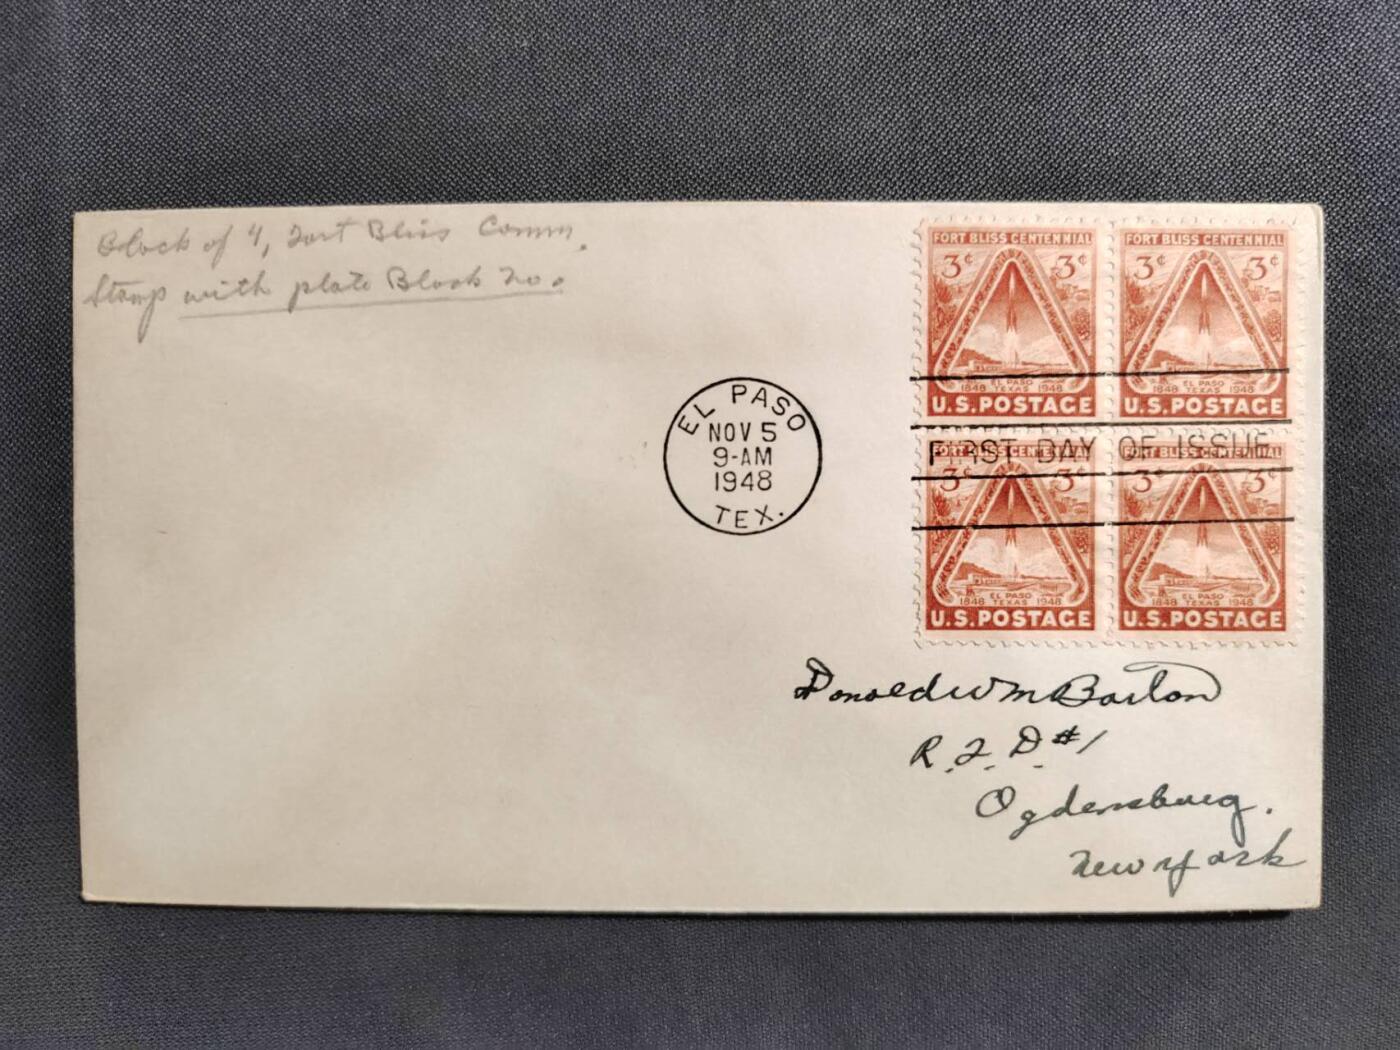 Block of 4, Fort Bliss Comm.
Stamp with plate Block No.
FORT BLISS CENTENNIAL
3¢ 3¢
1848 EL PASO TEXAS 1948
U.S. POSTAGE
FORT BLISS CENTENNIAL
3¢ 3¢
1848 EL PASO TEXAS 1948
U.S. POSTAGE
EL PASO
NOV 5
9-AM
1948
TEX.
FIRST DAY OF ISSUE
FORT BLISS CENTENNIAL
3¢ 3¢
1848 EL PASO TEXAS 1948
U.S. POSTAGE
FORT BLISS CENTENNIAL
3¢ 3¢
1848 EL PASO TEXAS 1948
U.S. POSTAGE
Donald Wm Barton
R.F.D #1
Ogdensburg.
New York